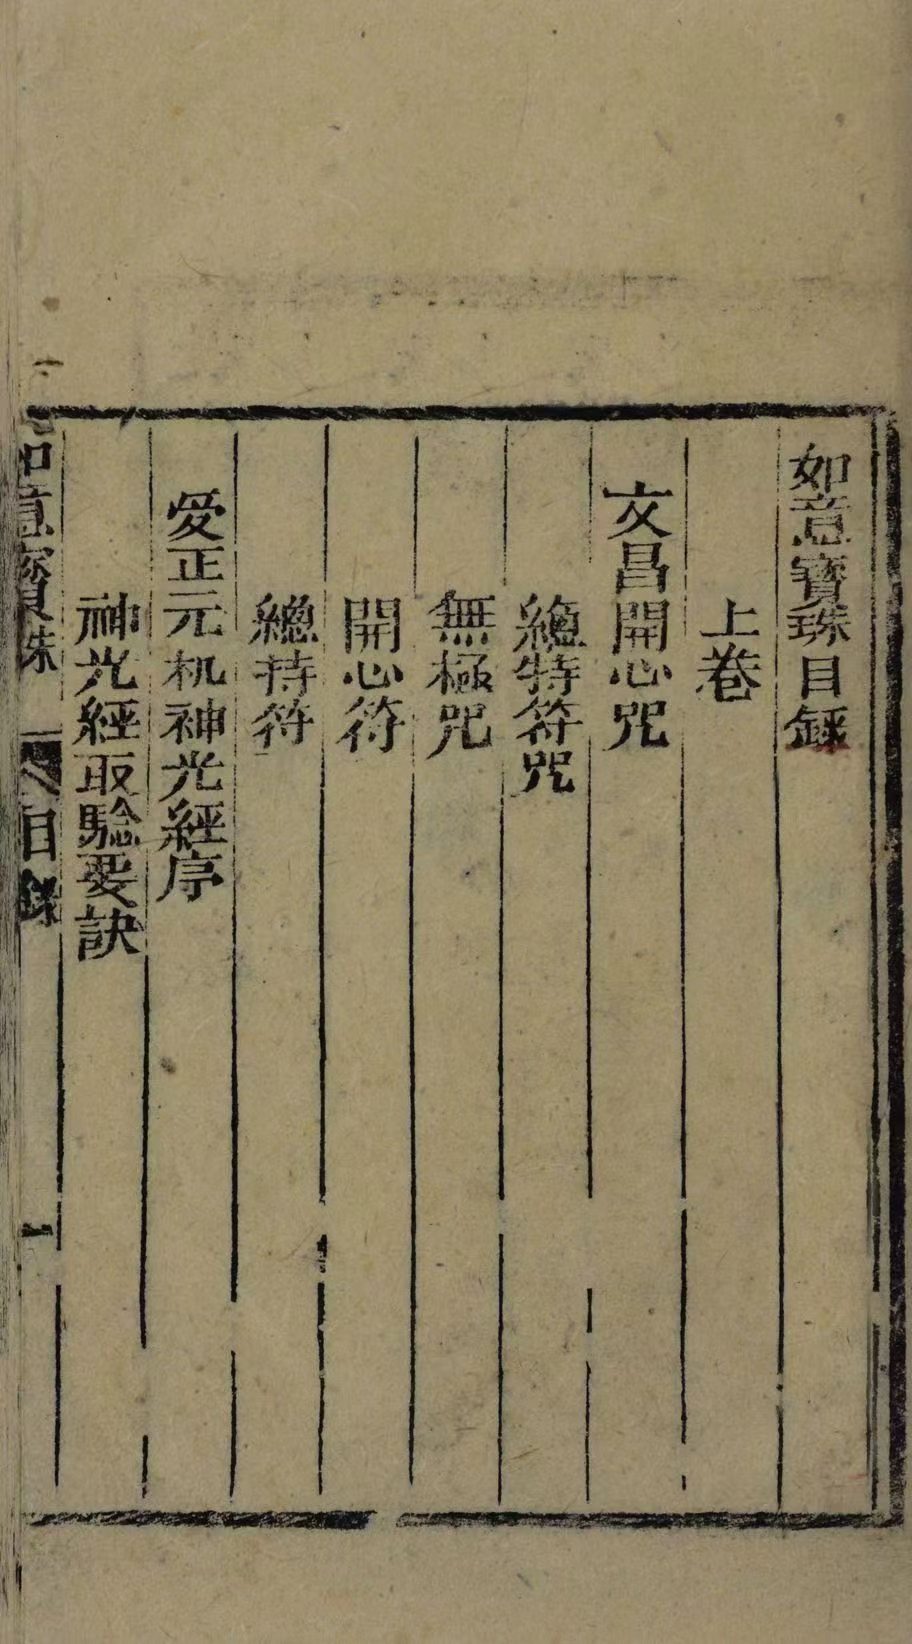 如意寶珠目錄
上卷
文昌開心咒
總持符咒
無極咒
開心符
總持符
爱正元机神光經序
神光經取騐要訣
如意寶珠 目錄 一